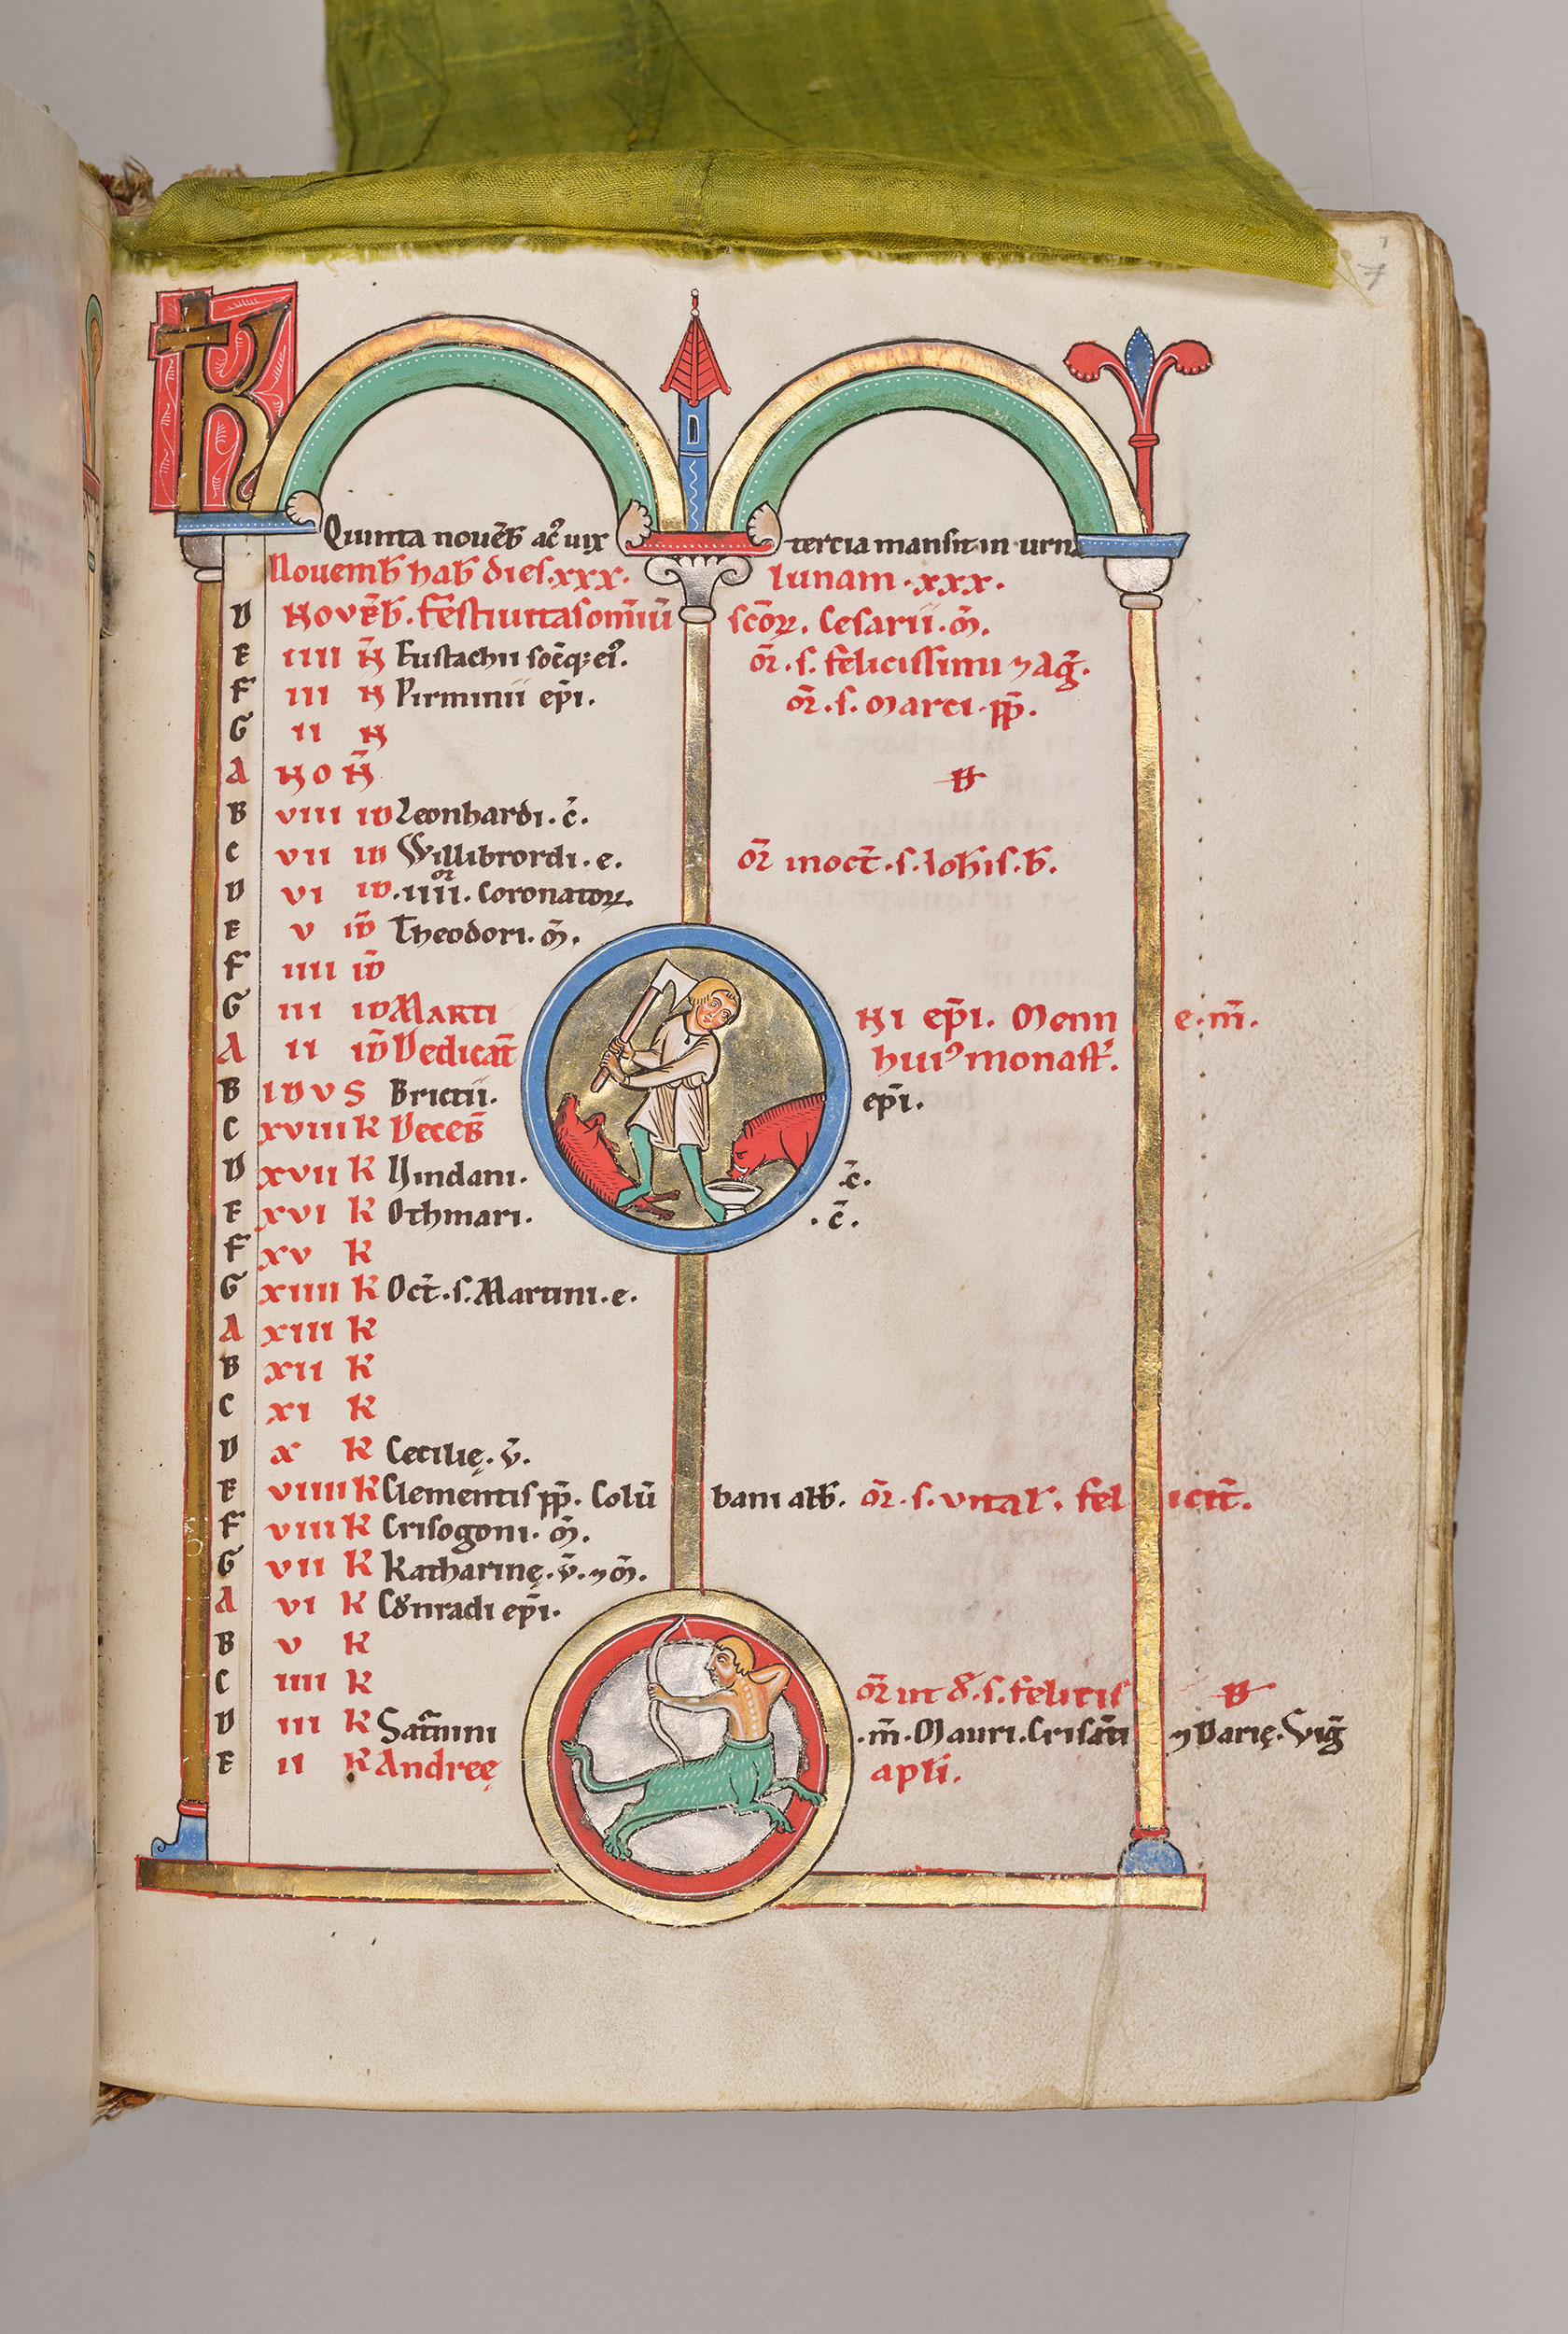 7
K
Quinta novēb ac᷒ uix tercia mansit in urna
Nouemb hab dies.xxx. lunam.xxx.
D NOVĒB. Festiuitas omiū scōꝝ. Cesarii.m̄.
E IIII N̄ Eustachii socq; ei᷒. or̄.s. felicissimi ⁊ Ag̃.
F III N Pirminii ep̄i. or̄.s. Marci.pp̄.
G II N
A NO N̄ D
B VIII ID Leonhardi.c̄.
C VII ID Willibrordi.e. or̄ in oct̄.s. Ioh̄is.b̄.
D VI ID .IIII.or Coronatoꝝ.
E V ID̄ Theodori.m̄.
F IIII ID̄
G III ID MARTINI ep̄i. Menne.m̄.
A II ID̄ Dedicat̄ hui᷒ monast̄.
B IDVS Brictii. ep̄i.
C XVIII K Deceb̄
D XVII K Vindani. c̄.
E XVI K Othmari. .c̄.
F XV K
G XIIII K Oct̄.s. Martini.e.
A XIII K
B XII K
C XI K
D X K Cecilię.v̄.
E VIIII K Clementis pp̄. Colūbani abb̄. or̄.s. vital̄. felicit̄.
F VIII K Crisogoni.m̄.
G VII K Katharinę.v̄.⁊m̄.
A VI K Cͦnradi ep̄i.
B V K
C IIII K or̄ in .s. felicis D
D III K Saturnini .m̄. Mauri. Crisāti ⁊ Darię. Vig̃
E II K Andreę apl̄i.